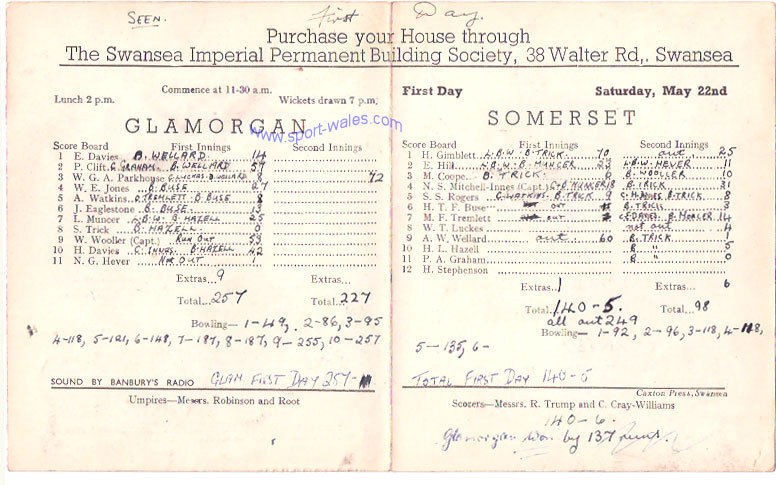 SEEN. First Day.
Purchase your House through
The Swansea Imperial Permanent Building Society, 38 Walter Rd,. Swansea
Commence at 11-30 a.m.
Lunch 2 p.m. Wickets drawn 7 p.m.
www.sport-wales.com
GLAMORGAN
Score Board First Innings Second Innings
1 E. Davies B. WELLARD 14
2 P. Clift C. GRAHAM B. WELLARD
3 W. G. A. Parkhouse B. WELLARD 72
4 W. E. Jones B. BUSE 27
5 A. Watkins C. TREMLETT B. BUSE
6 J. Eaglestone B. BUSE
7 L. Muncer L.B.W. B. HAZELL 25
8 S. Trick B. HAZELL 0
9 W. Wooller (Capt.) RUN OUT 53
10 H. Davies C. INNES B. HAZELL 42
11 N. G. Hever NOT OUT 1
Extras...9 Extras...
Total...257 Total...227
Bowling— 1-49, 2-86, 3-95
4-118, 5-121, 6-148, 7-187, 8-187, 9-255, 10-257
SOUND BY BANBURY'S RADIO GLAM FIRST DAY 257
Umpires—Messrs. Robinson and Root
First Day Saturday, May 22nd
SOMERSET
Score Board First Innings Second Innings
1 H. Gimblett L.B.W. B. TRICK 70 out 25
2 E. Hill L.B.W. B. MUNCER 23 L.B.W. HEVER 11
3 M. Coope B. TRICK 6 B. WOOLLER 10
4 N. S. Mitchell-Innes (Capt.) C + B. MUNCER 18 B. TRICK 31
5 S. S. Rogers C. WATKINS B. TRICK 9 B. TRICK 8
6 H. T. F. Buse out B. TRICK 3
7 M. F. Tremlett out C. E. DAVIES B. MUNCER 14
8 W. T. Luckes not out 4
9 A. W. Wellard out 60 B. TRICK
10 H. L. Hazell B " 5
11 P. A. Graham B " 0
12 H. Stephenson
Extras...1 Extras... 6
Total 140-5. Total...98
all out 249
Bowling— 1-92, 2-96, 3-118, 4-118,
5-135, 6-
TOTAL FIRST DAY 140-5
Caxton Press, Swansea
Scorers—Messrs. R. Trump and C. Cray-Williams
140-6.
Glamorgan Won by 137 runs.